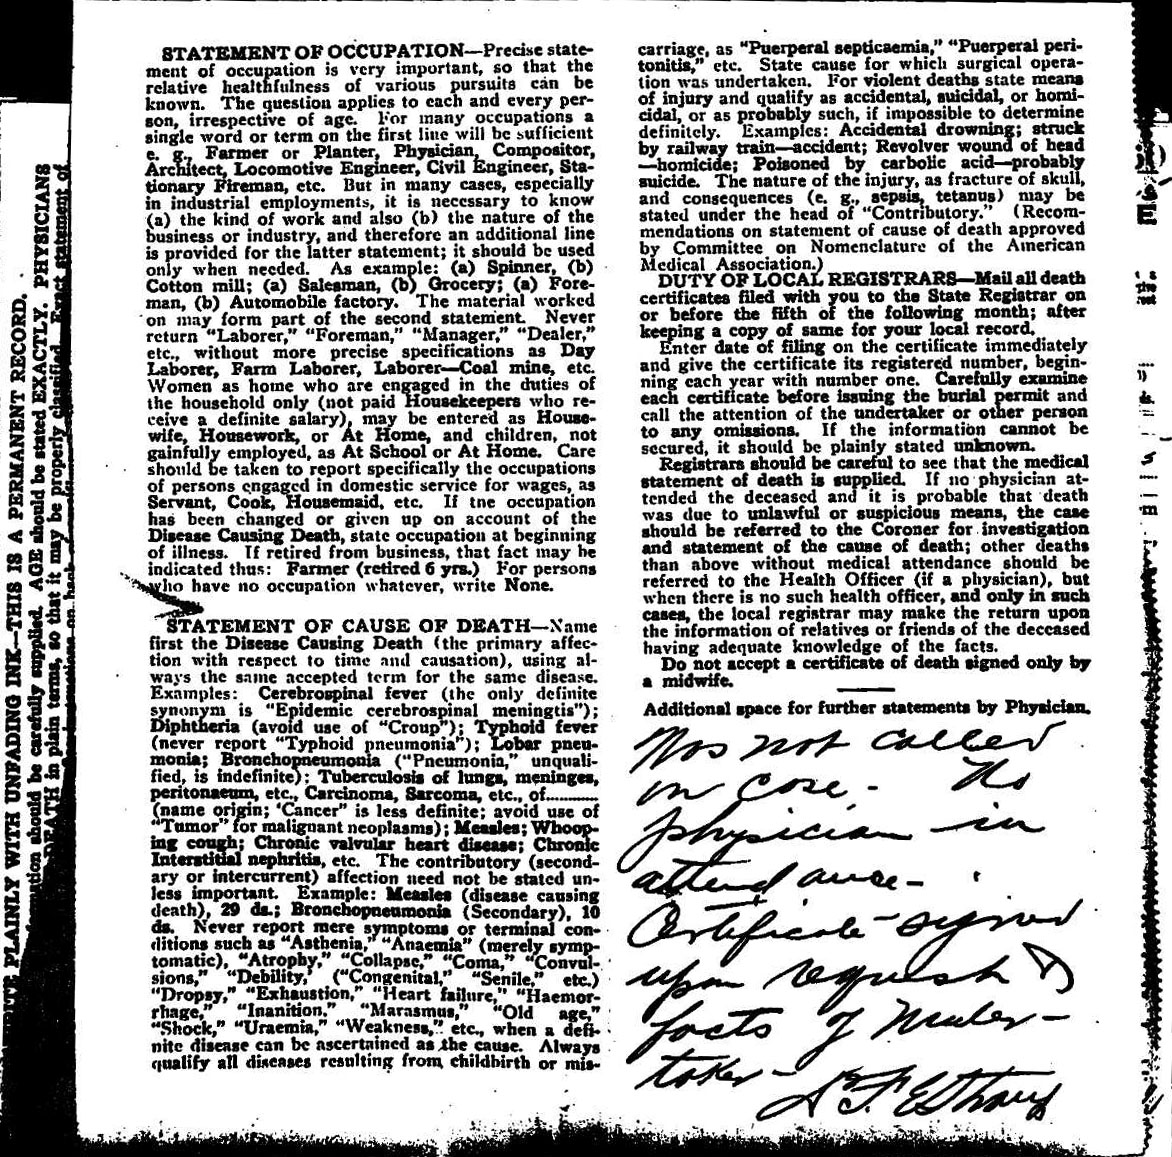 STATEMENT OF OCCUPATION—Precise state-
ment of occupation is very important, so that the
relative healthfulness of various pursuits can be
known. The question applies to each and every per-
son, irrespective of age. For many occupations a
single word or term on the first line will be sufficient
e. g., Farmer or Planter, Physician, Compositor,
Architect, Locomotive Engineer, Civil Engineer, Sta-
tionary Fireman, etc. But in many cases, especially
in industrial employments, it is necessary to know
(a) the kind of work and also (b) the nature of the
business or industry, and therefore an additional line
is provided for the latter statement; it should be used
only when needed. As example: (a) Spinner, (b)
Cotton mill; (a) Salesman, (b) Grocery; (a) Fore-
man, (b) Automobile factory. The material worked
on may form part of the second statement. Never
return "Laborer," "Foreman," "Manager," "Dealer,"
etc., without more precise specifications as Day
Laborer, Farm Laborer, Laborer—Coal mine, etc.
Women as home who are engaged in the duties of
the household only (not paid Housekeepers who re-
ceive a definite salary), may be entered as House-
wife, Housework, or At Home, and children, not
gainfully employed, as At School or At Home. Care
should be taken to report specifically the occupations
of persons engaged in domestic service for wages, as
Servant, Cook, Housemaid, etc. If tne occupation
has been changed or given up on account of the
Disease Causing Death, state occupation at beginning
of illness. If retired from business, that fact may be
indicated thus: Farmer (retired 6 yrs.) For persons
who have no occupation whatever, write None.
STATEMENT OF CAUSE OF DEATH—Name
first the Disease Causing Death (the primary affec-
tion with respect to time and causation), using al-
ways the same accepted term for the same disease.
Examples: Cerebrospinal fever (the only definite
synonym is "Epidemic cerebrospinal meningtis");
Diphtheria (avoid use of "Croup"); Typhoid fever
(never report "Typhoid pneumonia"); Lobar pneu-
monia; Bronchopneumonia ("Pneumonia," unquali-
fied, is indefinite); Tuberculosis of lungs, meninges,
peritonaeum, etc., Carcinoma, Sarcoma, etc., of............
(name origin; 'Cancer" is less definite; avoid use of
"Tumor" for malignant neoplasms); Measles; Whoop-
ing cough; Chronic valvular heart disease; Chronic
Interstitial nephritis, etc. The contributory (second-
ary or intercurrent) affection need not be stated un-
less important. Example: Measles (disease causing
death), 29 ds.; Bronchopneumonia (Secondary), 10
ds. Never report mere symptoms or terminal con-
ditions such as "Asthenia," "Anaemia" (merely symp-
tomatic), "Atrophy," "Collapse," "Coma," "Convul-
sions," "Debility,' ("Congenital," "Senile," etc.)
"Dropsy," "Exhaustion," "Heart failure," "Haemor-
rhage," "Inanition," "Marasmus," "Old age,"
"Shock," "Uraemia," "Weakness," etc., when a defi-
nite disease can be ascertained as the cause. Always
qualify all diseases resulting from childbirth or mis-
carriage, as "Puerperal septicaemia," "Puerperal peri-
tonitis," etc. State cause for which surgical opera-
tion was undertaken. For violent deaths state means
of injury and qualify as accidental, suicidal, or homi-
cidal, or as probably such, if impossible to determine
definitely. Examples: Accidental drowning; struck
by railway train—accident; Revolver wound of head
—homicide; Poisoned by carbolic acid—probably
suicide. The nature of the injury, as fracture of skull,
and consequences (e. g., sepsis, tetanus) may be
stated under the head of "Contributory." (Recom-
mendations on statement of cause of death approved
by Committee on Nomenclature of the American
Medical Association.)
DUTY OF LOCAL REGISTRARS—Mail all death
certificates filed with you to the State Registrar on
or before the fifth of the following month; after
keeping a copy of same for your local record.
Enter date of filing on the certificate immediately
and give the certificate its registered number, begin-
ning each year with number one. Carefully examine
each certificate before issuing the burial permit and
call the attention of the undertaker or other person
to any omissions. If the information cannot be
secured, it should be plainly stated unknown.
Registrars should be careful to see that the medical
statement of death is supplied. If no physician at-
tended the deceased and it is probable that death
was due to unlawful or suspicious means, the case
should be referred to the Coroner for investigation
and statement of the cause of death; other deaths
than above without medical attendance should be
referred to the Health Officer (if a physician), but
when there is no such health officer, and only in such
cases, the local registrar may make the return upon
the information of relatives or friends of the deceased
having adequate knowledge of the facts.
Do not accept a certificate of death signed only by
a midwife.
Additional space for further statements by Physician.
Was not called
in case. No
physician in
attendance.
Certificate signed
upon request &
facts of Under-
taker
PLAINLY WITH UNFADING INK—THIS IS A PERMANENT RECORD.
should be carefully supplied. AGE should be stated EXACTLY. PHYSICIANS
DEATH in plain terms, so that it may be properly classified. Exact statement of